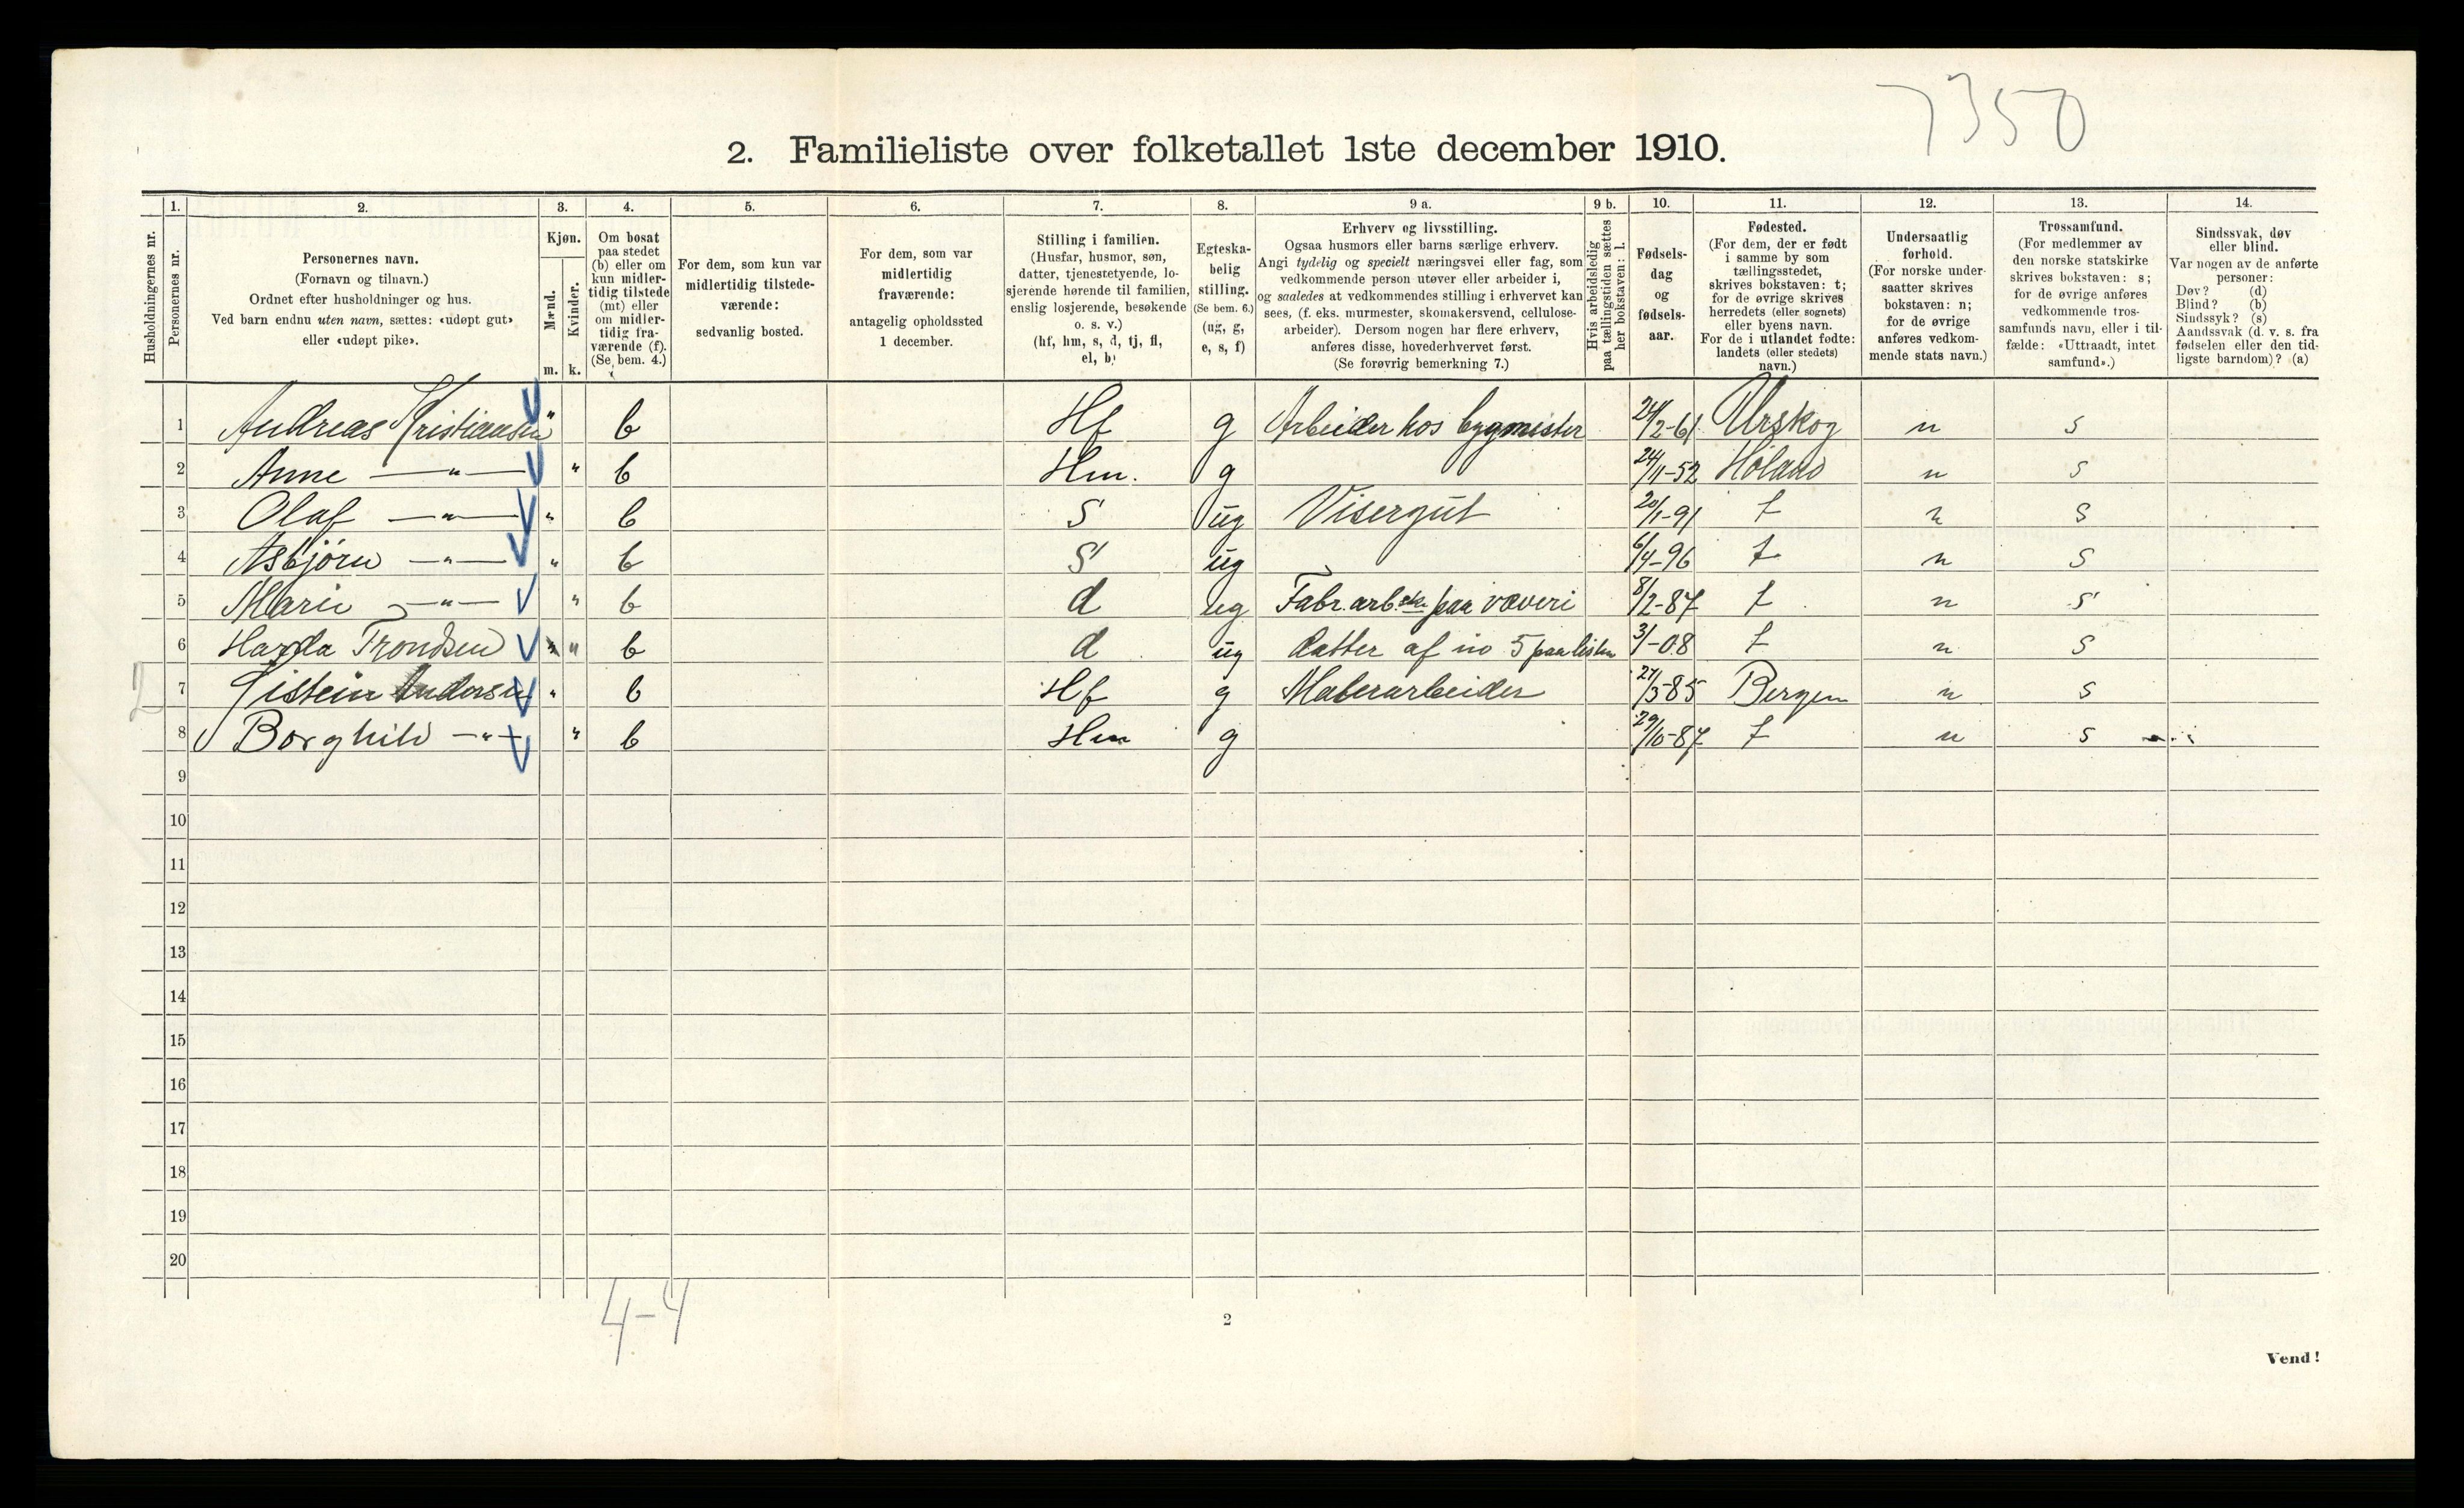 7350
2. Familieliste over folketallet 1ste december 1910.
1. 2. 3. 4. 5. 6. 7. 8. 9 a. 9 b. 10. 11. 12. 13. 14.
Husholdningernes nr.
Personernes nr.
Personernes navn.
(Fornavn og tilnavn.)
Ordnet efter husholdninger og hus.
Ved barn endnu uten navn, sættes: «udøpt gut»
eller «udøpt pike».
Kjøn.
Mænd.
Kvinder.
m. k.
Om bosat
paa stedet
(b) eller om
kun midler-
tidig tilstede
(mt) eller
om midler-
tidig fra-
værende (f).
(Se bem. 4.)
For dem, som kun var
midlertidig tilstede-
værende:
sedvanlig bosted.
For dem, som var
midlertidig
fraværende:
antagelig opholdssted
1 december.
Stilling i familien.
(Husfar, husmor, søn,
datter, tjenestetyende, lo-
sjerende hørende til familien,
enslig losjerende, besøkende
o. s. v.)
(hf, hm, s, d, tj, fl,
el, b)
Egteska-
belig
stilling.
(Se bem. 6.)
(ug, g,
e, s, f)
Erhverv og livsstilling.
Ogsaa husmors eller barns særlige erhverv.
Angi tydelig og specielt næringsvei eller fag, som
vedkommende person utøver eller arbeider i,
og saaledes at vedkommendes stilling i erhvervet kan
sees, (f. eks. murmester, skomakersvend, cellulose-
arbeider). Dersom nogen har flere erhverv,
anføres disse, hovederhvervet først.
(Se forøvrig bemerkning 7.)
Hvis arbeidsledig
paa tællingstiden sættes
her bokstaven: l.
Fødsels-
dag
og
fødsels-
aar.
Fødested.
(For dem, der er født
i samme by som
tællingsstedet,
skrives bokstaven: t;
for de øvrige skrives
herredets (eller sognets)
eller byens navn.
For de i utlandet fødte:
landets (eller stedets)
navn.)
Undersaatlig
forhold.
(For norske under-
saatter skrives
bokstaven: n;
for de øvrige
anføres vedkom-
mende stats navn.)
Trossamfund.
(For medlemmer av
den norske statskirke
skrives bokstaven: s;
for de øvrige anføres
vedkommende tros-
samfunds navn, eller i til-
fælde: «Uttraadt, intet
samfund».)
Sindssvak, døv
eller blind.
Var nogen av de anførte
personer:
Døv? (d)
Blind? (b)
Sindssyk? (s)
Aandssvak (d. v. s. fra
fødselen eller den tid-
ligste barndom)? (a)
1 Andreas Kristiansen " b Hf g Arbeider hos bygmester 24/2-61 Urskog n s
2 Anne —"— " b Hm. g 24/11-52 Höland n s
3 Olaf —"— " b S ug Visergut 20/1-91 t n s
4 Asbjörn —"— " b S ug 6/4-96 t n s
5 Marie —"— " b d ug Fabr. arb.ske paa væveri 8/2-87 t n s
6 Harda Trondsen " b d ug datter af no 5 paa listen 3/-08 t n s
2 7 Eistein Andersen " b Hf g Malerarbeider 27/3-85 Bergen n s
8 Borghild —"— " b Hm g 29/10-87 t n s
9
10
11
12
13
14
15
16
17
18
19
20
4-4
2
Vend!